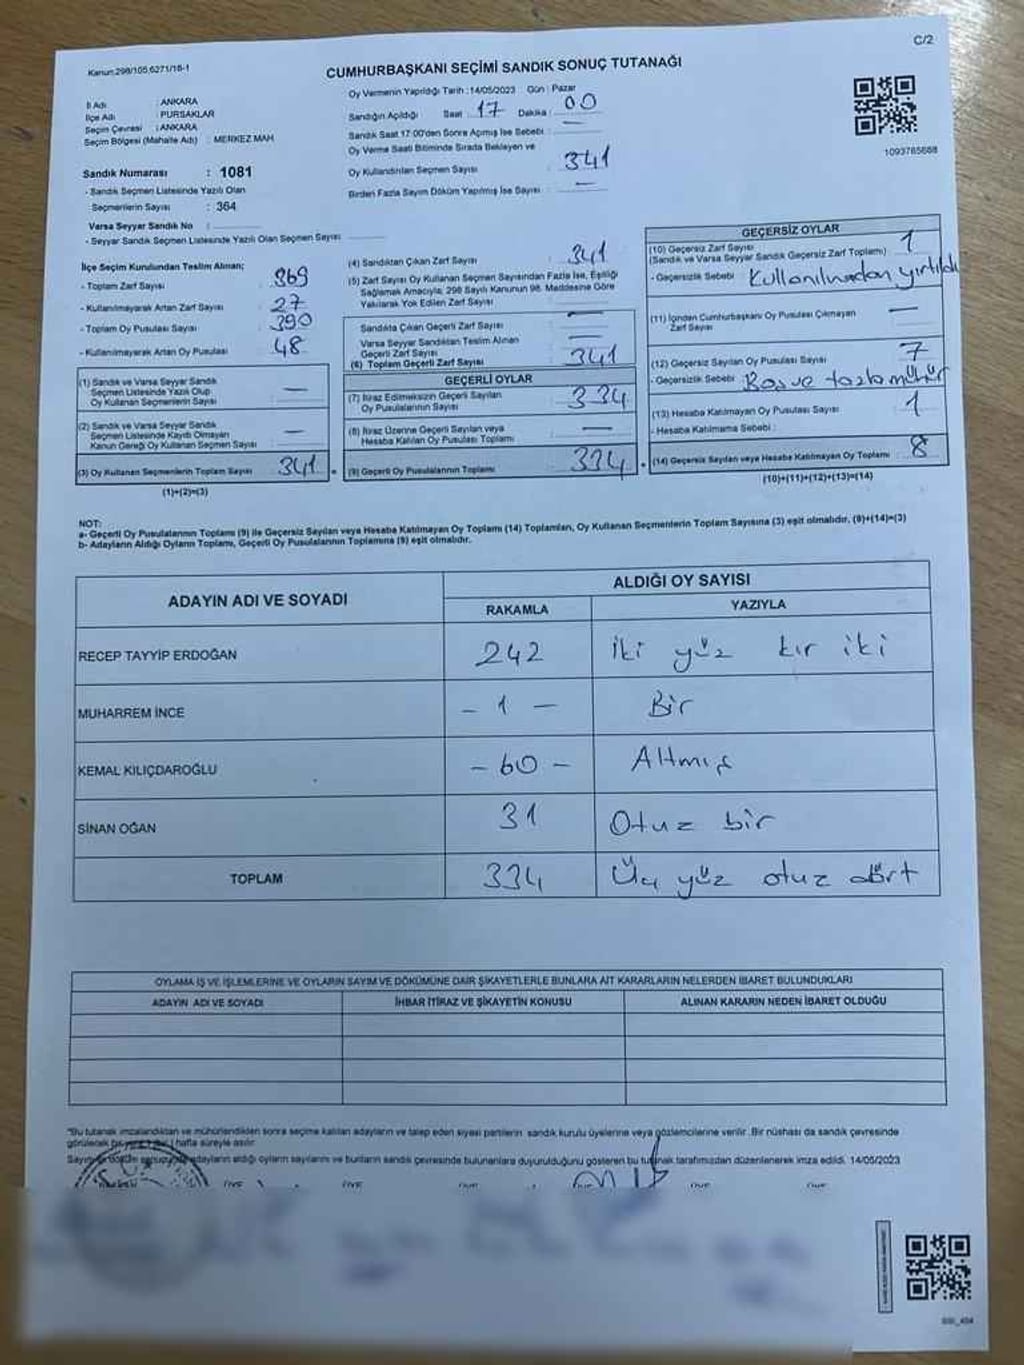 C/2
Kanun;298/105,6271/16-1
CUMHURBAŞKANI SEÇİMİ SANDIK SONUÇ TUTANAĞI
İl Adı : ANKARA
İlçe Adı : PURSAKLAR
Seçim Çevresi : ANKARA
Seçim Bölgesi (Mahalle Adı) : MERKEZ MAH
Sandık Numarası : 1081
- Sandık Seçmen Listesinde Yazılı Olan
Seçmenlerin Sayısı : 364
Varsa Seyyar Sandık No :
- Seyyar Sandık Seçmen Listesinde Yazılı Olan Seçmen Sayısı
Oy Vermenin Yapıldığı Tarih : 14/05/2023 Gün : Pazar
Sandığın Açıldığı Saat : 17 Dakika : 00
Sandık Saat 17:00'den Sonra Açmış İse Sebebi : —
Oy Verme Saati Bitiminde Sırada Bekleyen ve
Oy Kullandırılan Seçmen Sayısı 341
Birden Fazla Sayım Döküm Yapılmış İse Sayısı : —
1093765668
İlçe Seçim Kurulundan Teslim Alınan;
- Toplam Zarf Sayısı 369
- Kullanılmayarak Artan Zarf Sayısı 27
- Toplam Oy Pusulası Sayısı 390
- Kullanılmayarak Artan Oy Pusulası 48
(1) Sandık ve Varsa Seyyar Sandık
Seçmen Listesinde Yazılı Olup
Oy Kullanan Seçmenlerin Sayısı —
(2) Sandık ve Varsa Seyyar Sandık
Seçmen Listesinde Kaydı Olmayan
Kanun Gereği Oy Kullanan Seçmen Sayısı —
(3) Oy Kullanan Seçmenlerin Toplam Sayısı 341
(1)+(2)=(3)
(4) Sandıktan Çıkan Zarf Sayısı : 341
(5) Zarf Sayısı Oy Kullanan Seçmen Sayısından Fazla İse, Eşitliği
Sağlamak Amacıyla; 298 Sayılı Kanunun 98. Maddesine Göre
Yakılarak Yok Edilen Zarf Sayısı —
Sandıkta Çıkan Geçerli Zarf Sayısı —
Varsa Seyyar Sandıktan Teslim Alınan
Geçerli Zarf Sayısı
(6) Toplam Geçerli Zarf Sayısı 341
GEÇERLİ OYLAR
(7) İtiraz Edilmeksizin Geçerli Sayılan
Oy Pusulalarının Sayısı 334
(8) İtiraz Üzerine Geçerli Sayılan veya
Hesaba Katılan Oy Pusulası Toplamı —
(9) Geçerli Oy Pusulalarının Toplamı 334
GEÇERSİZ OYLAR
(10) Geçersiz Zarf Sayısı 1
(Sandık ve Varsa Seyyar Sandık Geçersiz Zarf Toplamı)
- Geçersizlik Sebebi Kullanılmadan yırtıldı
(11) İçinden Cumhurbaşkanı Oy Pusulası Çıkmayan
Zarf Sayısı —
(12) Geçersiz Sayılan Oy Pusulası Sayısı 7
- Geçersizlik Sebebi Boş ve fazla mühür
(13) Hesaba Katılmayan Oy Pusulası Sayısı 1
- Hesaba Katılmama Sebebi :
(14) Geçersiz Sayılan veya Hesaba Katılmayan Oy Toplamı 8
(10)+(11)+(12)+(13)=(14)
NOT:
a- Geçerli Oy Pusulalarının Toplamı (9) ile Geçersiz Sayılan veya Hesaba Katılmayan Oy Toplamı (14) Toplamları, Oy Kullanan Seçmenlerin Toplam Sayısına (3) eşit olmalıdır, (9)+(14)=(3)
b- Adayların Aldığı Oyların Toplamı, Geçerli Oy Pusulalarının Toplamına (9) eşit olmalıdır.
ADAYIN ADI VE SOYADI ALDIĞI OY SAYISI
RAKAMLA YAZIYLA
RECEP TAYYİP ERDOĞAN 242 İki yüz kır iki
MUHARREM İNCE - 1 - Bir
KEMAL KILIÇDAROĞLU - 60 - Altmış
SİNAN OĞAN 31 Otuz bir
TOPLAM 334 Üç yüz otuz dört
OYLAMA İŞ VE İŞLEMLERİNE VE OYLARIN SAYIM VE DÖKÜMÜNE DAİR ŞİKAYETLERLE BUNLARA AİT KARARLARIN NELERDEN İBARET BULUNDUKLARI
ADAYIN ADI VE SOYADI İHBAR İTİRAZ VE ŞİKAYETİN KONUSU ALINAN KARARIN NEDEN İBARET OLDUĞU
"Bu tutanak imzalandıktan ve mühürlendikten sonra seçime katılan adayların ve talep eden siyasi partilerin sandık kurulu üyelerine veya gözlemcilerine verilir. Bir nüshası da sandık çevresinde
hafta süreyle asılır.
adayların aldığı oyların sayılarını ve bunların sandık çevresinde bulunanlara duyurulduğunu gösteren bu tutanak tarafımızdan düzenlenerek imza edildi. 14/05/2023